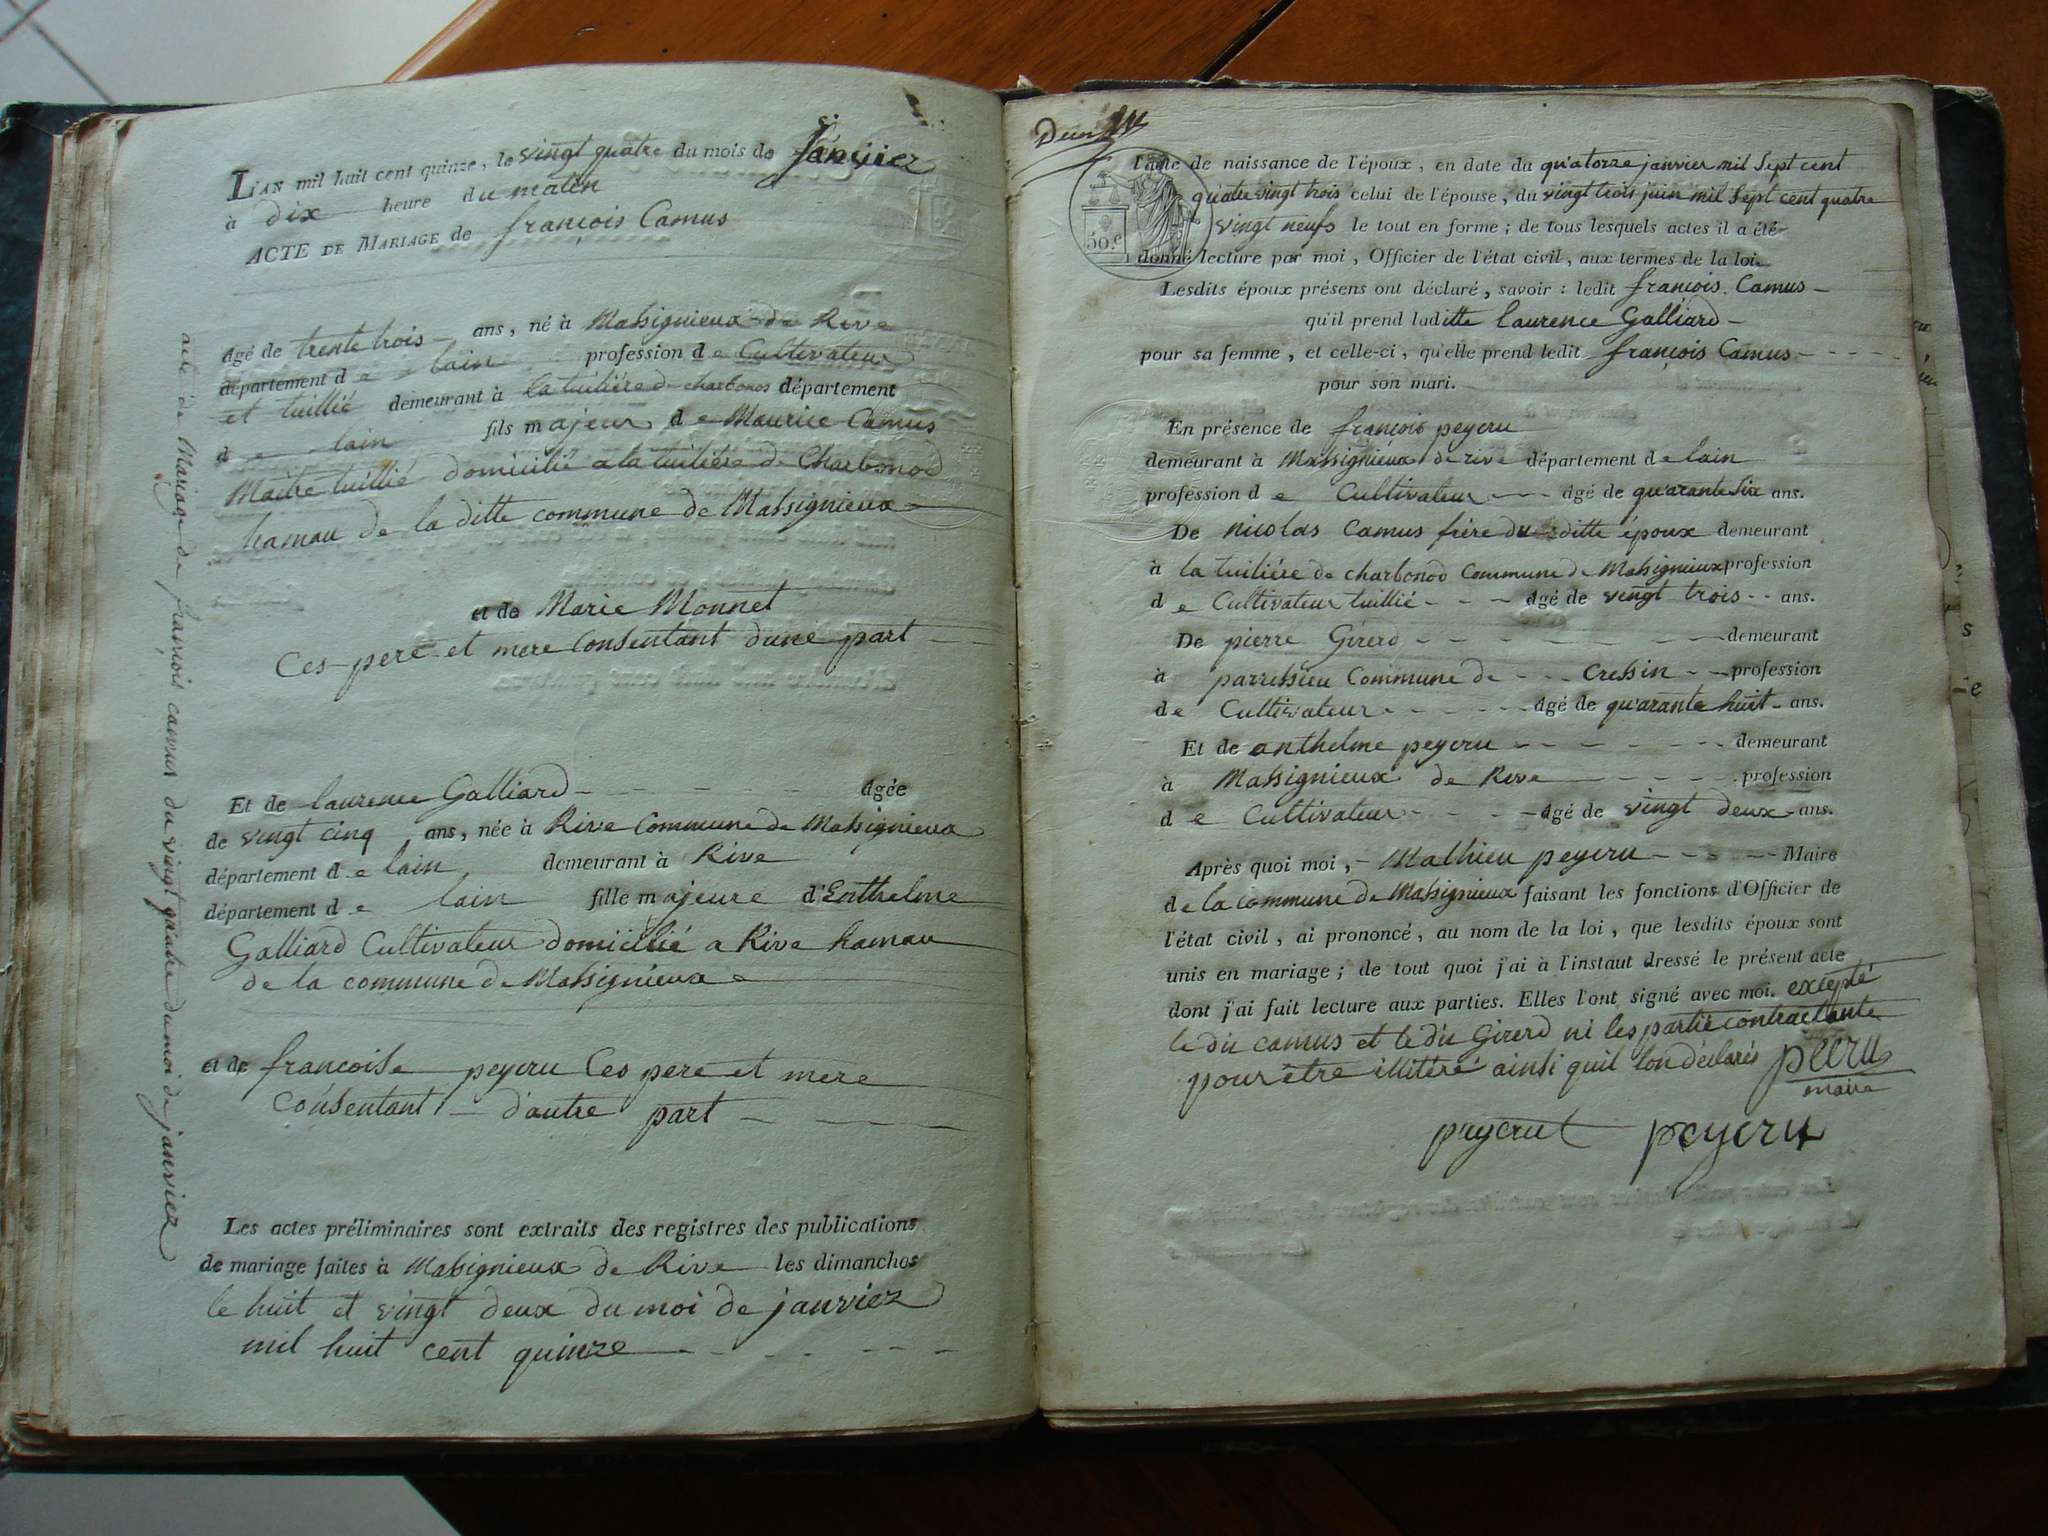 L'AN mil huit cent quinze, le vingt quatre du mois de Janvier
à dix heure du matin
ACTE DE MARIAGE de françois Camus
âgé de trente trois ans, né à Massignieux de Rive
département de lain profession de Cultivateur
et tuillié demeurant à la tuiliére de charbonos département
de lain fils majeur de Maurice Camus
Maitre tuillié domicilié a la tuiliére de Charbonod
hamau de la ditte commune de Massignieux
et de Marie Monnet
Ces pere et mere consentant d'une part
Et de laurence Galliard âgée
de vingt cinq ans, née à Rive Commune de Massignieux
département de lain demeurant à Rive
département de lain fille majeure d'Enthelme
Galliard Cultivateur domicilié a Rive hamau
de la commune de Massignieux
et de francoise peycru Ces pere et mere
consentant d'autre part
Les actes préliminaires sont extraits des registres des publications
de mariage faites à Massignieux de Rive les dimanches
le huit et vingt deux du moi de janvier
mil huit cent quinze
acte de Mariage de françois camus du vingt quatre du moi de janvier
Deux
l'acte de naissance de l'époux, en date du quatorze janvier mil Sept cent
quatre vingt trois celui de l'épouse, du vingt trois juin mil Sept cent quatre
vingt neufs le tout en forme; de tous lesquels actes il a été
50 c
donné lecture par moi, Officier de l'état civil, aux termes de la loi.
Lesdits époux présens ont déclaré, savoir: ledit françois Camus
qu'il prend laditte laurence Galliard
pour sa femme, et celle-ci, qu'elle prend ledit françois Camus
pour son mari.
En présence de françois peycru
demeurant à Massignieux de rive département de lain
profession de Cultivateur âgé de quarante six ans.
De nicolas Camus frére du ditte époux demeurant
à la tuiliére de charbonod Commune de Massignieux profession
de Cultivateur tuillié âgé de vingt trois ans.
De pierre Girerd demeurant
à parressieu Commune de Cressin profession
de Cultivateur âgé de quarante huit ans.
Et de anthelme peycru demeurant
à Massignieux de Rive profession
de Cultivateur âgé de vingt deux ans.
Après quoi moi, Mathieu peycru Maire
de la commune de Massignieux faisant les fonctions d'Officier de
l'état civil, ai prononcé, au nom de la loi, que lesdits époux sont
unis en mariage; de tout quoi j'ai à l'instant dressé le présent acte
dont j'ai fait lecture aux parties. Elles l'ont signé avec moi. excepté
le dii camus et le dii Girerd ni les partie contractante
pour être illitéré ainsi quil lon déclarés pecru
maire
peycrut peycru